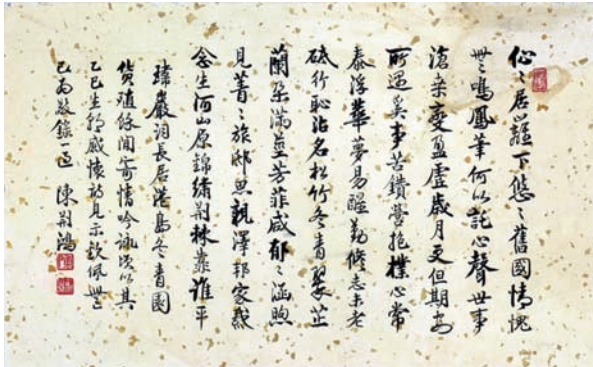 仙々居巖下悠々舊國情愧
無鳴鳳筆何以託心聲世事
滄桑變盈虛歲月更但期安
所遇奚事苦鑽營抱樸心常
泰浮華夢易醒勤修志未老
砥行恥沽名松竹冬青翠芷
蘭朵滿莖芳菲感郁々涵煦
見菁々旅邸思親澤邦家感
念生河山原錦繡荊棘靠誰平
瑋巖詞長居港島冬青園
貨殖餘閒寄情吟詠頃以其
乙巳生朝感懷詩見示欽佩無
已為敬錄一過 陳荊鴻